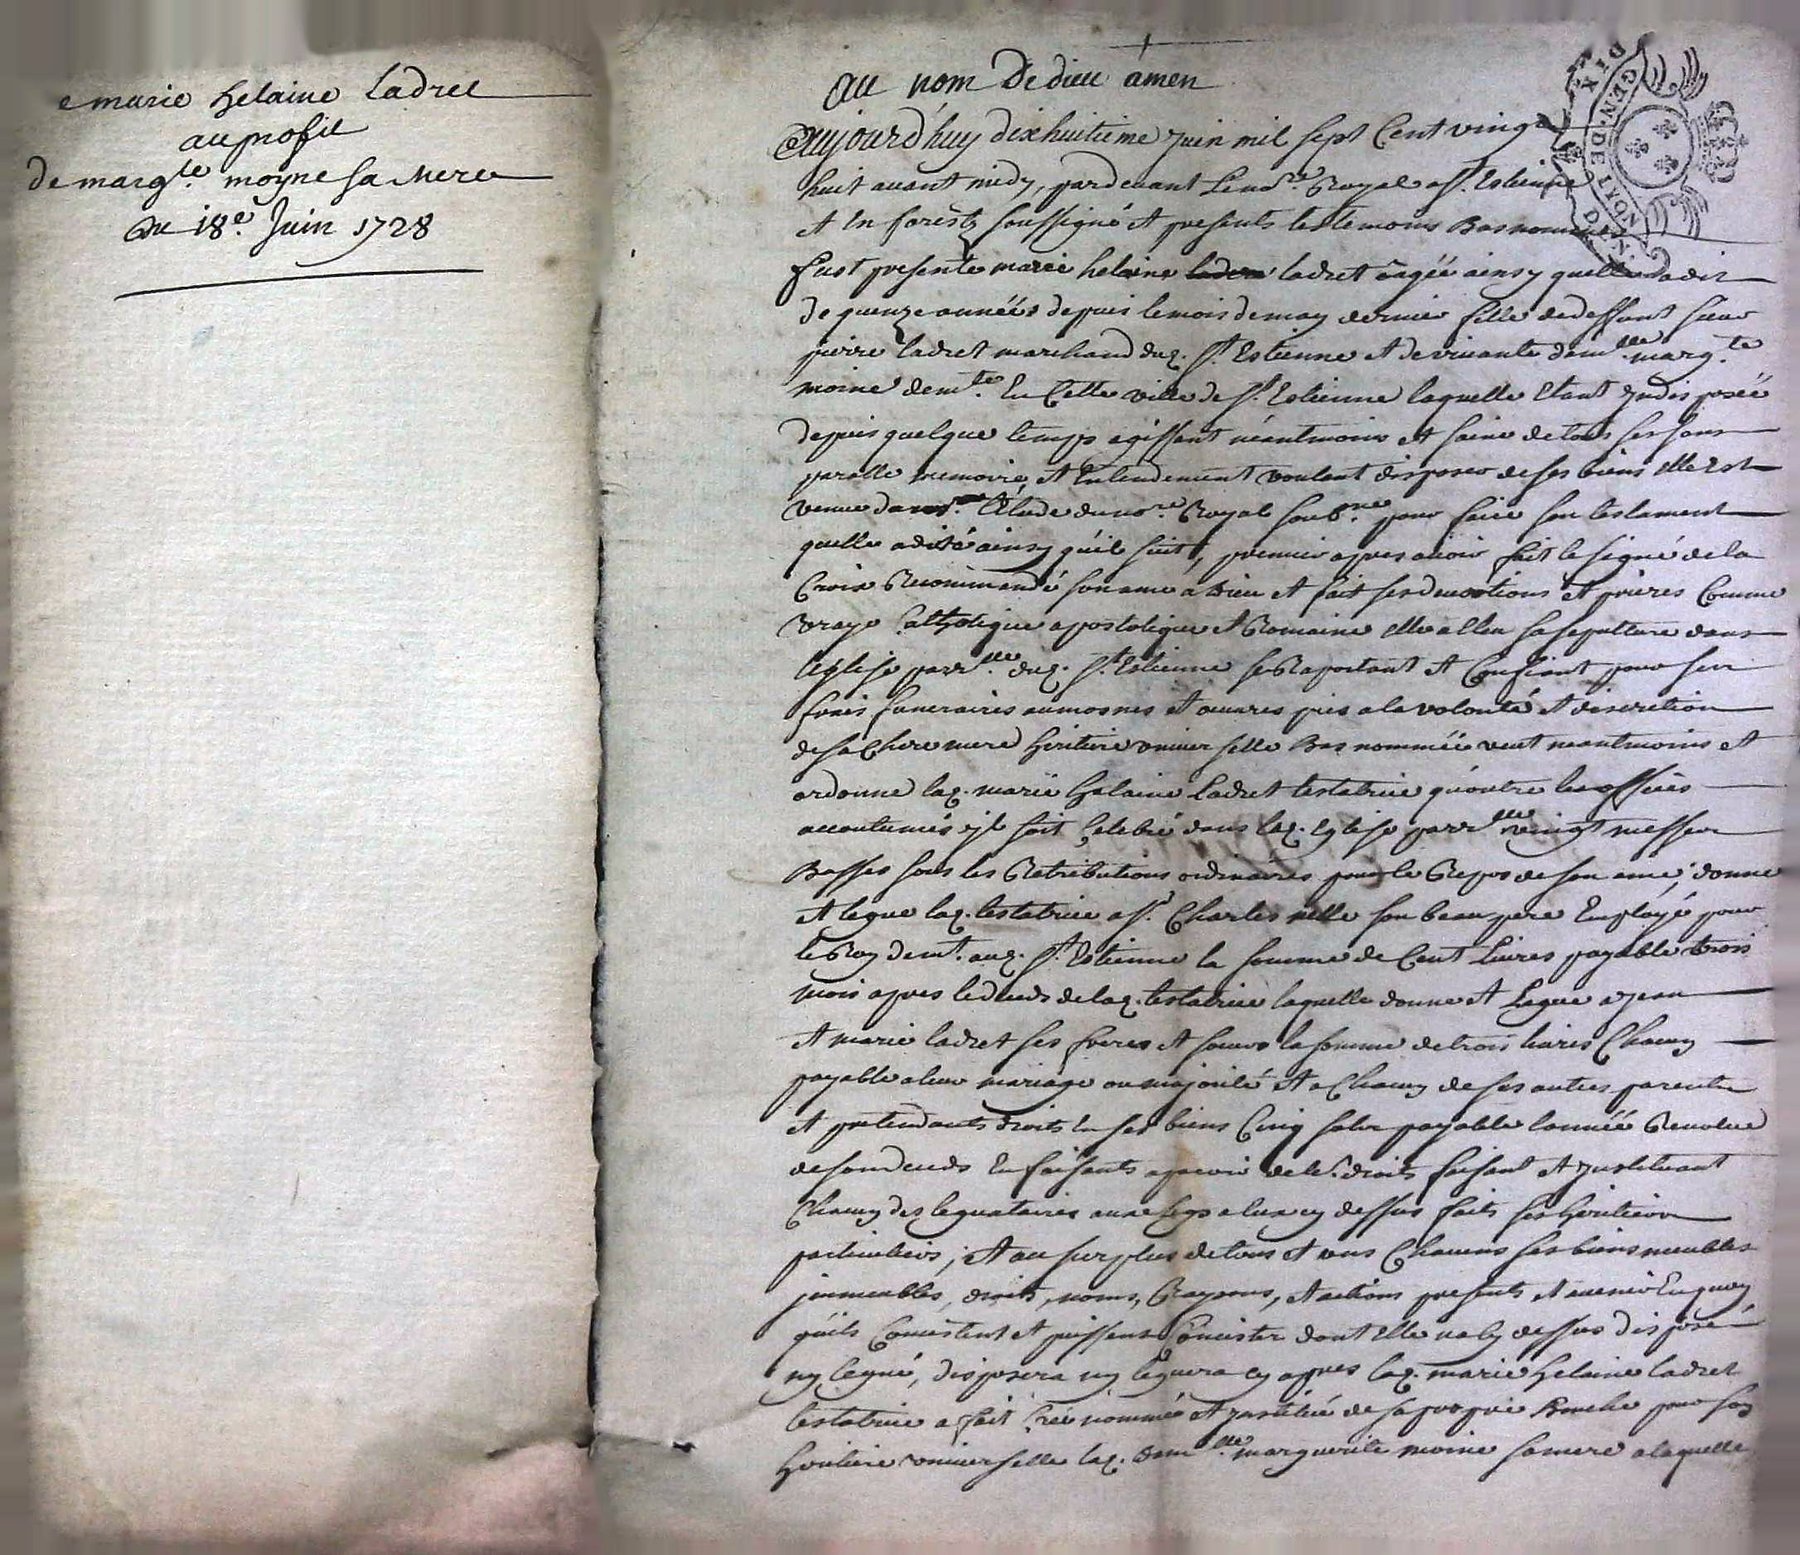 e marie helaine Ladret
au profit
de marg.te moyne sa mere
Du 18e. Juin 1728
au nom De dieu amen
aujourd'huy dixhuitieme juin mil sept Cent vingt
huit avant midy, pardevant le no.re Royal a St. Estienne
et en forestz soussigné et presents les temoins Bas nommes
fust presente marie helaine ladret aagée ainsy quelle a dit
de quenze années depuis le mois de may dernier fille de deffunt sieur
pierre ladret marchand dud. St. Estienne et de vivante dem.lle marg.te
moine dem.te En Cette ville de St. Estienne laquelle Etant Indisposée
depuis quelque temps agissant néantmoins et saine de tous ses sens
parolle memoire, et Entendement voulant disposer de ses biens elle Est
venue dans l'Etude du no.re Royal soub.né pour faire son testament
quelle a dité ainsy qu'il suit, premier apres avoir fait le signe de la
Croix Recommandé son ame a Dieu et fait ses devotions et prieres Comme
vraye Catholique apostolique et Romaine elle a Elu sa sepulture dans
leglise parr.lle dud. St. Estienne se Raportant et Confiant pour ses
frais funeraires aumosnes et œuvres pies a la volonté et discretion
de sa Chere mere heritiere universelle Bas nommée veut neantmoins et
ordonne lad. marie helaine Ladret testatrice qu'outre les offices
accoutumés il soit Celebré dans lad. Eglise parr.lle vingt messes
Basses sous les Retributions ordinaires pour le Repos de son ame; donne
et legue lad. testatrice a sr. Charles nelle son beau pere Employé pour
le Roy dem.t aud. St. Estienne la somme de Cent Livres payable trois
mois apres le deceds de lad. testatrice laquelle donne et Legue a jean
et marie ladret ses freres et soeurs la somme de trois livres Chacun
payable a leur mariage ou majorité et a Chacun de ses autres parents
et pretendants droits en ses biens Cinq sols payable l'année Revolue
de son deceds En faisants aparoir de le.s droits faisant et Instituant
Chacun des leguataires aux legs a eux cy dessus faits ses heritiers
particuliers; et au surplus de tous et uns Chacuns ses biens meubles
jmmeubles, droits, noms, Raysons, et actions presents et avenir En quoy
qu'ils Concistent et puissent Concister dont Elle na cy dessus disposé
ny legué, disposera ny leguera cy apres lad. marie helaine ladret
testatrice a fait Créé nommé et Institué de sa propre Bouche pour son
heritiere universelle lad. dem.lle marguerite moine sa mere a laquelle
GEN DE
DIX